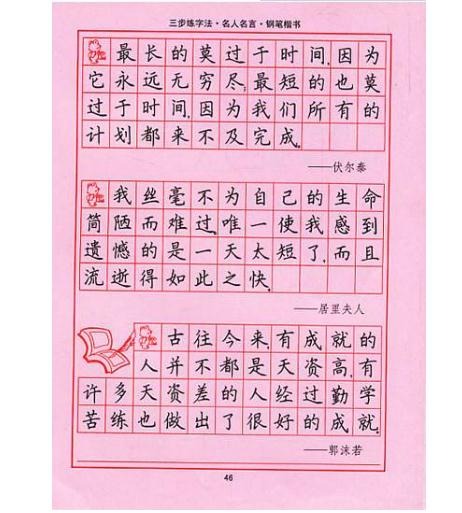 三步练字法·名人名言·钢笔楷书
最长的莫过于时间,因为
它永远无穷尽;最短的也莫
过于时间,因为我们所有的
计划都来不及完成。
——伏尔泰
我丝毫不为自己的生命
简陋而难过,唯一使我感到
遗憾的是一天太短了,而且
流逝得如此之快。
——居里夫人
古往今来,有成就的
人并不都是天资高,有
许多天资差的人经过勤学
苦练也做出了很好的成就。
——郭沫若
46